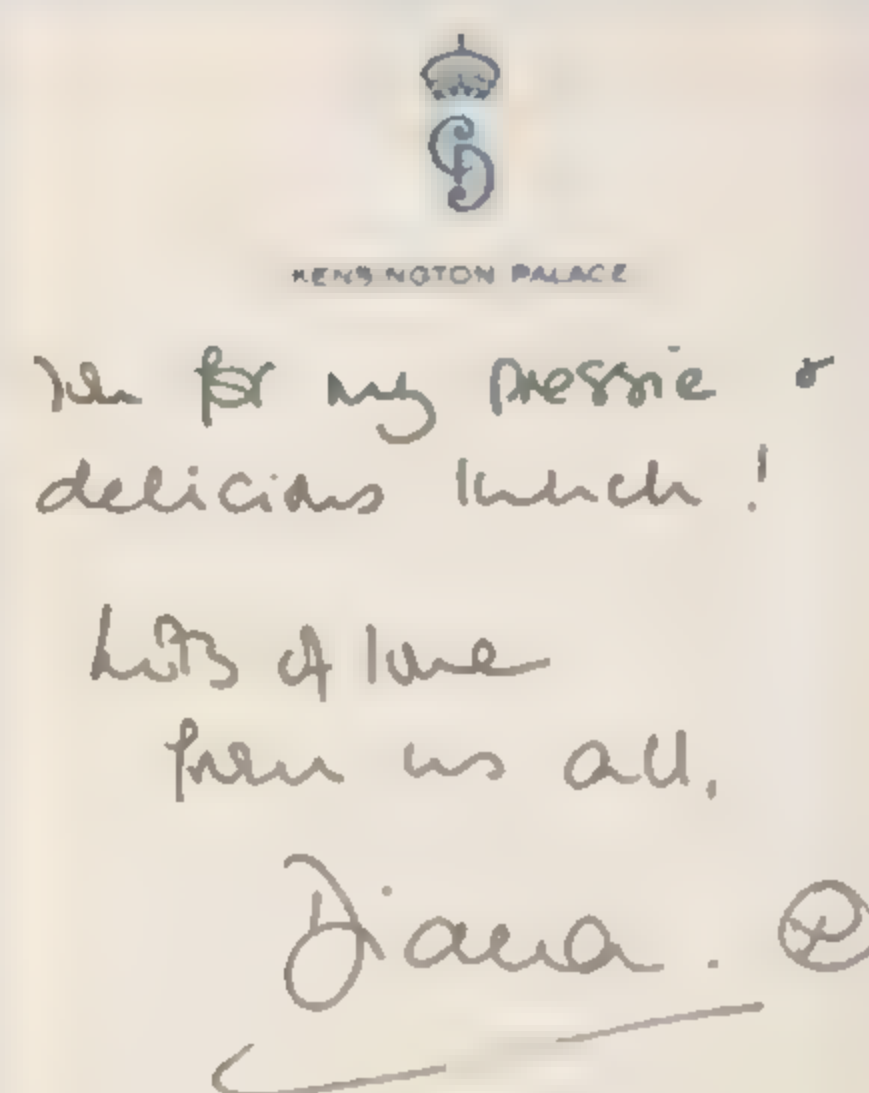 KENSINGTON PALACE
for my pressie &
delicious lunch!
Lots of love
from us all,
Diana.